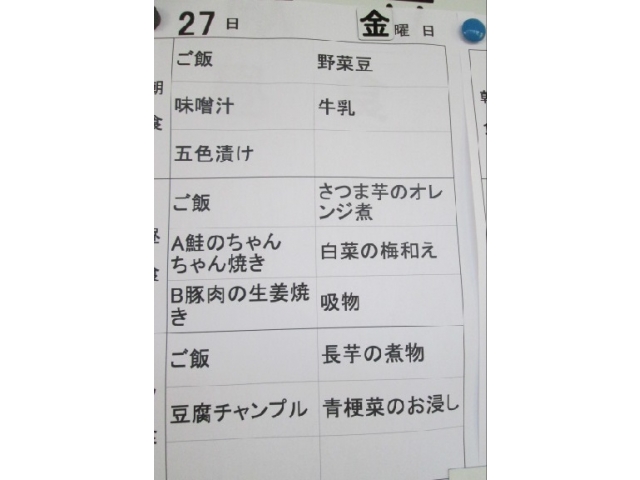 27日 金曜日
朝食
ご飯 野菜豆
味噌汁 牛乳
五色漬け
昼食
ご飯 さつま芋のオレ
ンジ煮
A鮭のちゃん
ちゃん焼き 白菜の梅和え
B豚肉の生姜焼
き 吸物
ご飯 長芋の煮物
豆腐チャンプル 青梗菜のお浸し